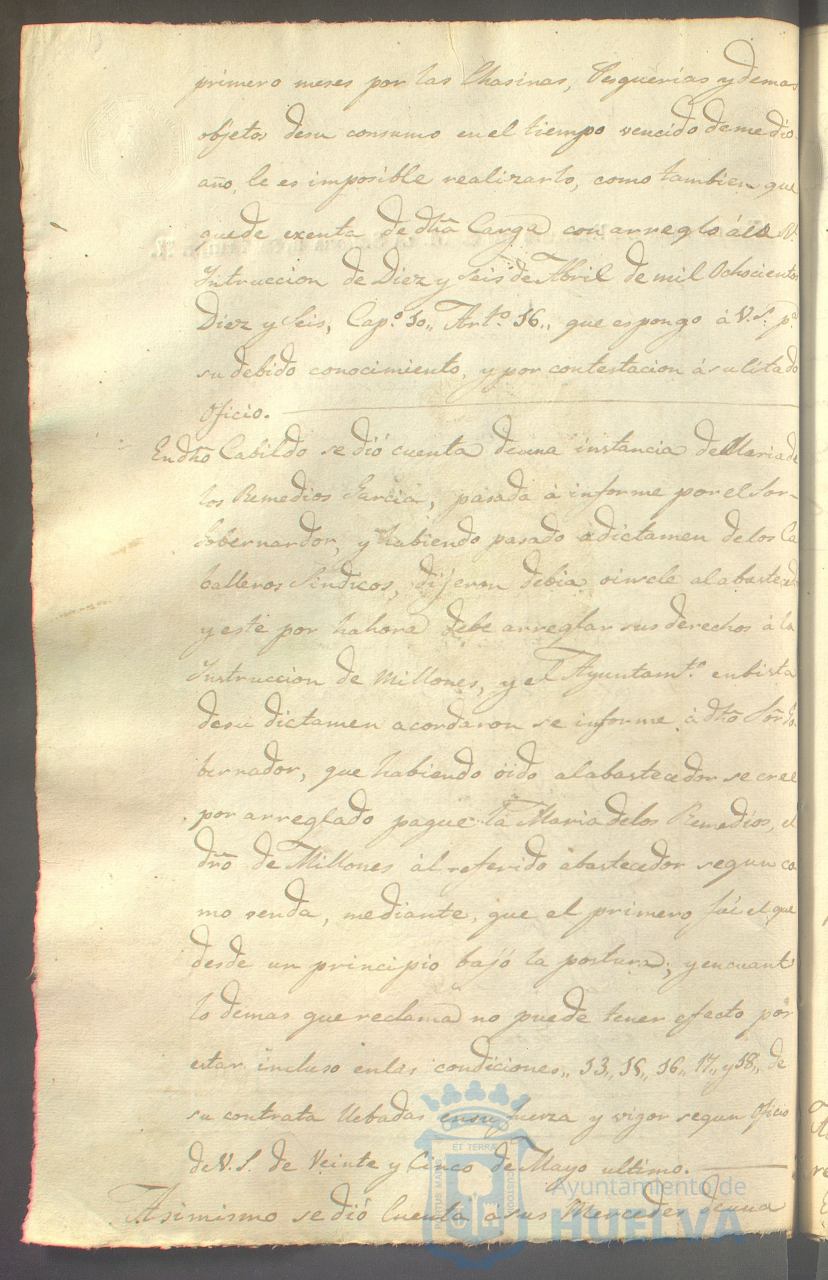 primero meses por las Chasinas, Pesquerias y demas
objetos desu consumo en el tiempo vencido de medio
año, le es imposible realizarlo, como tambien que
quede exenta de dha Carga con arreglo á la Rl.
Intruccion de Diez y Seis de Abril de mil Ochocientos
Diez y Seis, Capo. 10,, Arto. 16,, que espongo á V.S. pa.
su debido conocimiento, y por contestacion á su litado
Oficio.
En dho Cabildo se dió cuenta deuna instancia de Maria de
los Remedios Garcia, pasada á informe por el Sor.
Gobernardor, y habiendo pasado a dictamen de los Ca
balleros Sindicos, dijeron debia oirsele al abasteedr
y este por hahora debe arreglar sus derechos á la
Instruccion de Millones, y el Ayuntamto. en bista
desu dictamen acordaron se informe á dho Sor. Go
bernador, que habiendo óido al abastecedor se cree
por arreglado pague la Maria delos Remedios, el
dro de Millones ál referido abastecedor segun co
mo venda, mediante, que el primero fué el que
desde un principio bajó la postura; y encuant
lo demas que reclama no puede tener efecto por
estar incluso enlas condiciones,, 13,, 15,, 16,, 17,, y 18,, de
su contrata llebadas ensu fuerza y vigor segun Oficio
de V.S. de Veinte y Cinco de Mayo ultimo.
Asimismo se dió Cuenta á sus Mercedes deuna
ET TERRÆ
CUSTODIA
Ayuntamiento de
HUELVA